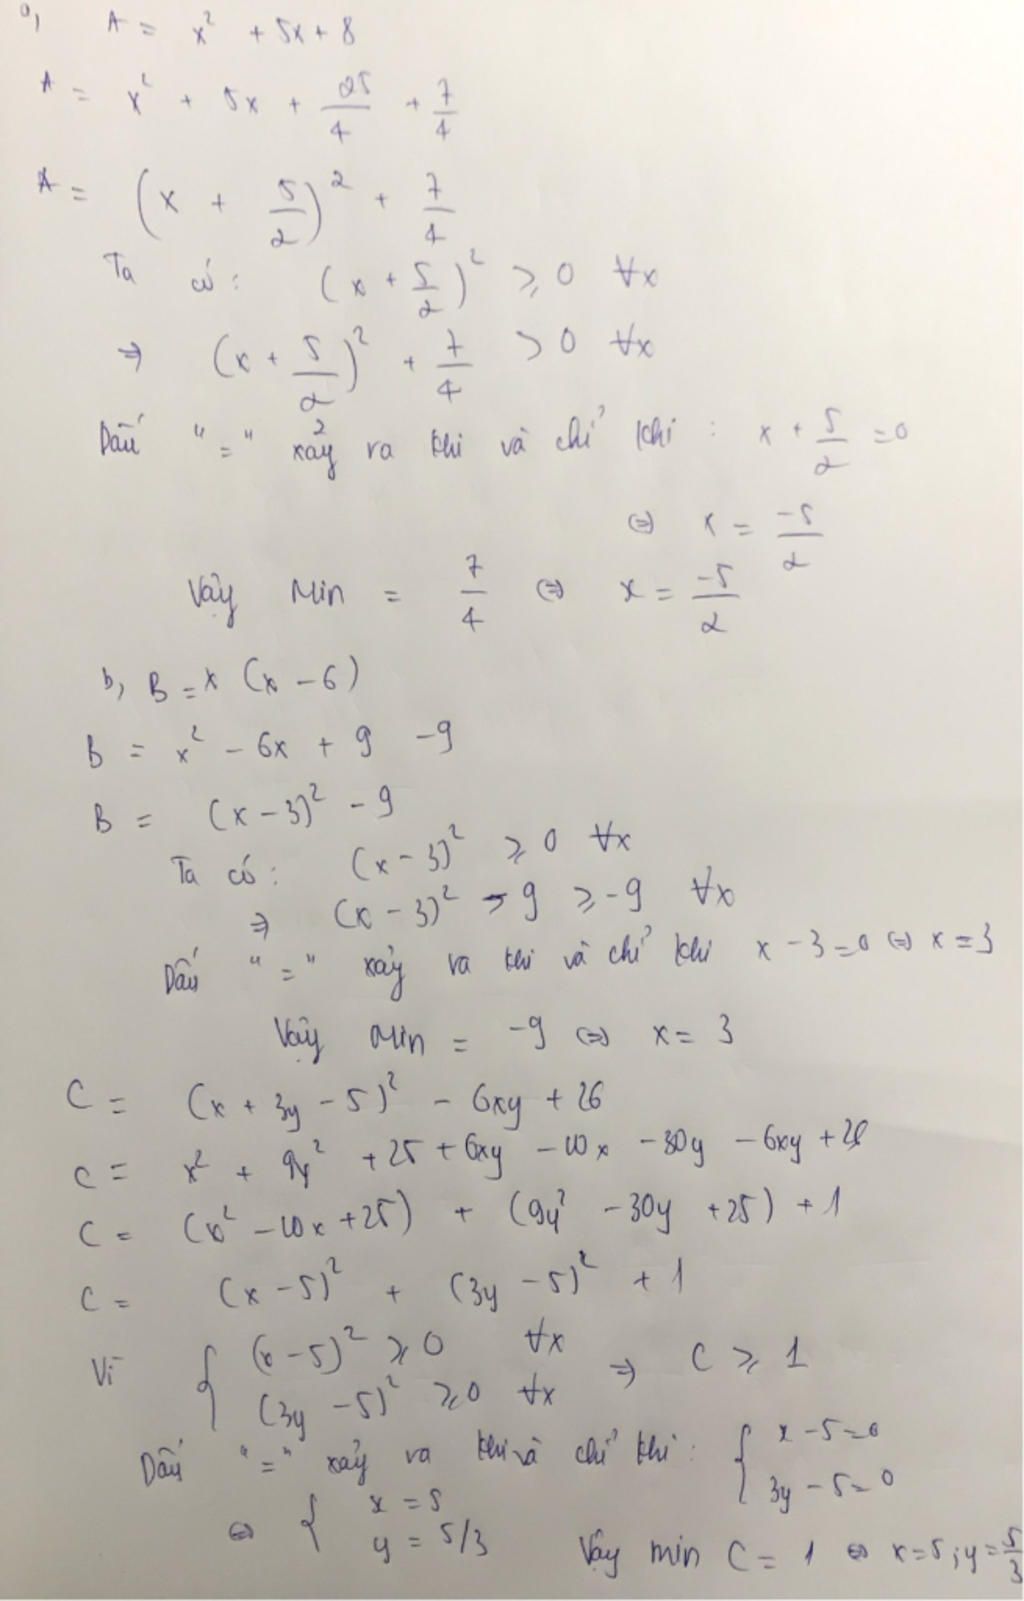 a, A = x² + 5x + 8
A = x² + 5x + 25/4 + 7/4
A = (x + 5/2)² + 7/4
Ta có: (x + 5/2)² ⩾ 0 ∀x
⇒ (x + 5/2)² + 7/4 > 0 ∀x
Dấu "=" xảy ra khi và chỉ khi : x + 5/2 = 0
⇔ x = -5/2
Vậy Min = 7/4 ⇔ x = -5/2
b, B = x (x - 6)
B = x² - 6x + 9 - 9
B = (x - 3)² - 9
Ta có: (x - 3)² ⩾ 0 ∀x
⇒ (x - 3)² - 9 ⩾ -9 ∀x
Dấu "=" xảy ra khi và chỉ khi x - 3 = 0 ⇔ x = 3
Vậy Min = -9 ⇔ x = 3
C = (x + 3y - 5)² - 6xy + 26
C = x² + 9y² + 25 + 6xy - 10x - 30y - 6xy + 26
C = (x² - 10x + 25) + (9y² - 30y + 25) + 1
C = (x - 5)² + (3y - 5)² + 1
Vì { (x - 5)² ⩾ 0 ∀x
(3y - 5)² ⩾ 0 ∀x ⇒ C ⩾ 1
Dấu "=" xảy ra khi và chỉ khi : { x - 5 = 0
3y - 5 = 0
⇔ { x = 5
y = 5/3 Vậy min C = 1 ⇔ x = 5 ; y = 5/3